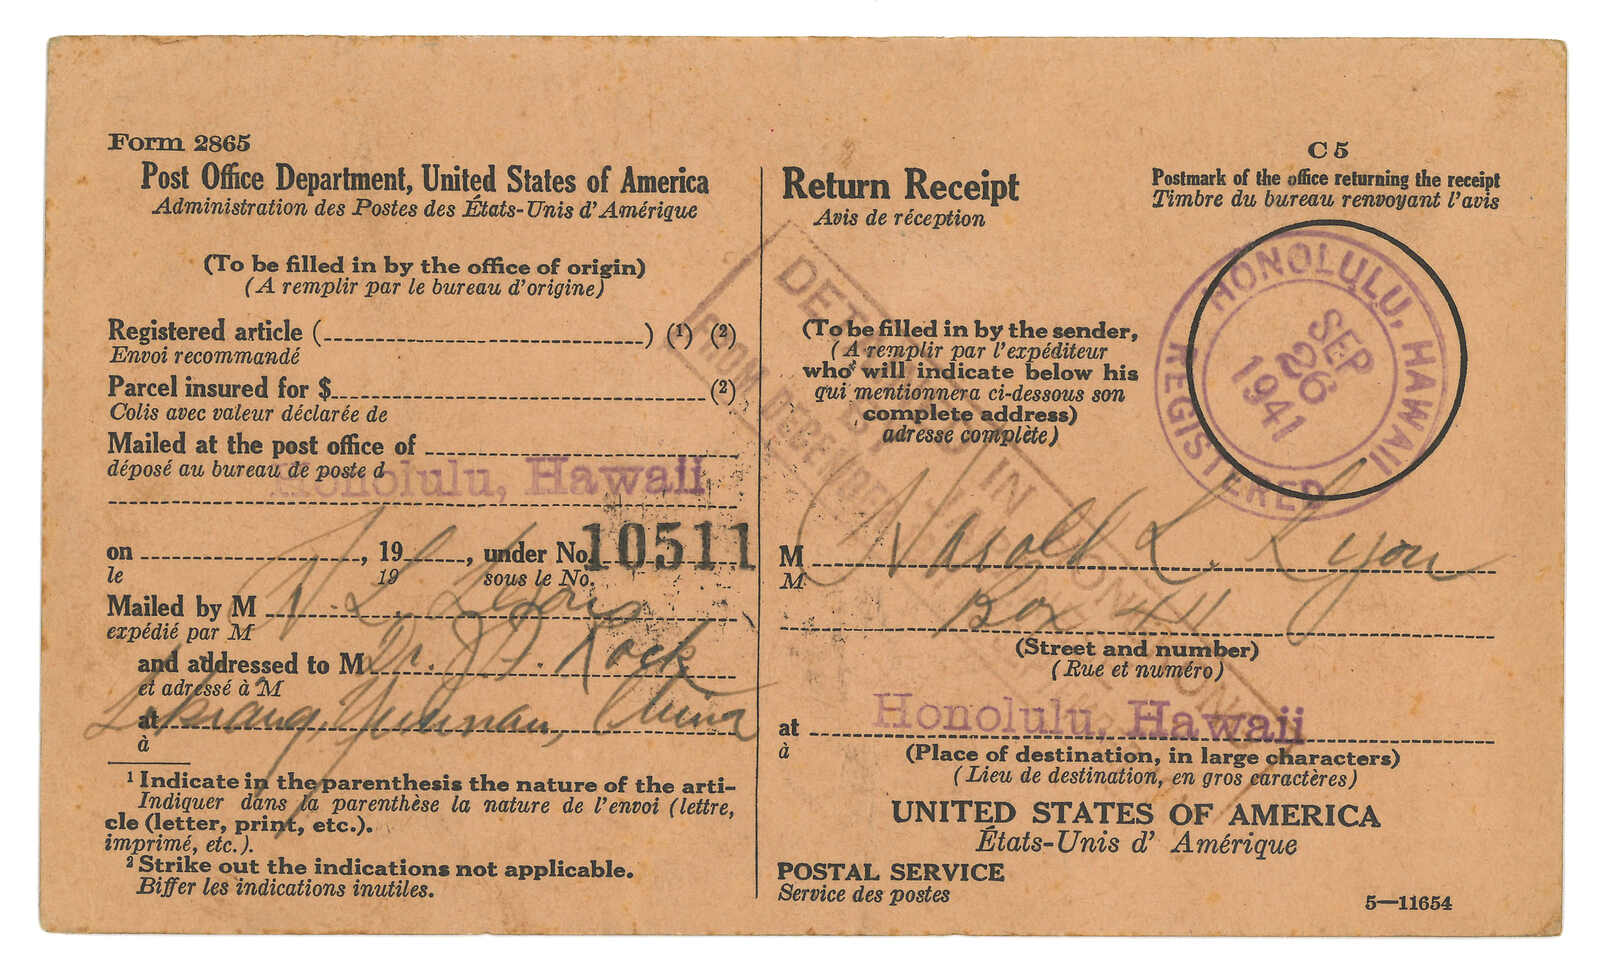 Form 2865
Post Office Department, United States of America
Administration des Postes des États-Unis d'Amérique
(To be filled in by the office of origin)
(A remplir par le bureau d'origine)
Registered article (    ) (1) (2)
Envoi recommandé
Parcel insured for $    (2)
Colis avec valeur déclarée de
Mailed at the post office of
déposé au bureau de poste d
Honolulu, Hawaii
on    , 19    , under No. 10511
le    19    sous le No.
Mailed by M H. L. Lyon
expédié par M
and addressed to M Dr. J. F. Rock
et adressé à M
at Likiang, Yunnan, China
à
1 Indicate in the parenthesis the nature of the arti-
Indiquer dans la parenthèse la nature de l'envoi (lettre,
cle (letter, print, etc.).
imprimé, etc.).
2 Strike out the indications not applicable.
Biffer les indications inutiles.
Return Receipt
Avis de réception
C 5
Postmark of the office returning the receipt
Timbre du bureau renvoyant l'avis
HONOLULU, HAWAII
SEP
26
1941
REGISTERED
DETAINED IN
BY
FROM DECEMBER
(To be filled in by the sender,
(A remplir par l'expéditeur
who will indicate below his
qui mentionnera ci-dessous son
complete address)
adresse complète)
M Harold L. Lyon
M
Box 411
(Street and number)
(Rue et numéro)
at Honolulu, Hawaii
à
(Place of destination, in large characters)
(Lieu de destination, en gros caractères)
UNITED STATES OF AMERICA
États-Unis d' Amérique
POSTAL SERVICE
Service des postes
5—11654